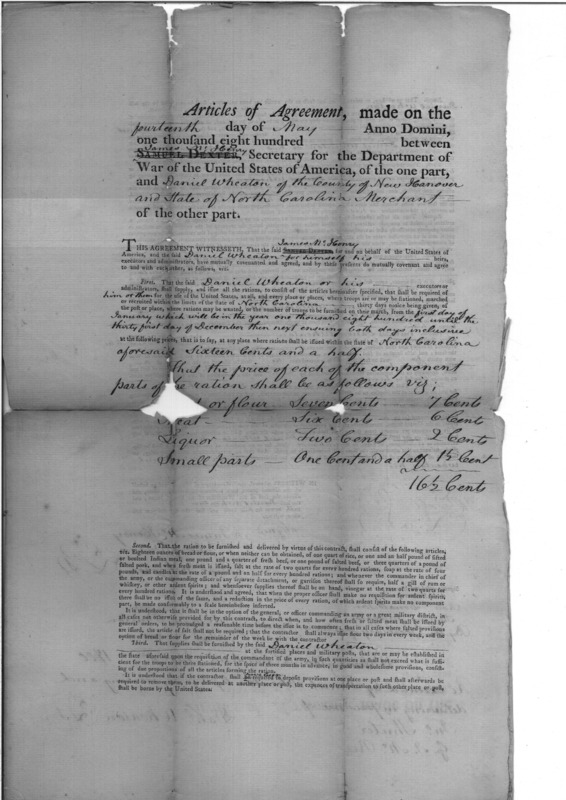 Articles of Agreement, made on the
fourteenth day of May Anno Domini,
one thousand eight hundred between
James McHenry
SAMUEL DEXTER, Secretary for the Department of
War of the United States of America, of the one part,
and Daniel Wheaton of the County of New Hanover
and State of North Carolina Merchant
of the other part.
James McHenry
THIS AGREEMENT WITNESSETH, That the said SAMUEL DEXTER, for and on behalf of the United States of
America, and the said Daniel Wheaton for himself his heirs,
executors and administrators, have mutually covenanted and agreed, and by these presents do mutually covenant and agree
to and with each other, as follows, viz:
First. That the said Daniel Wheaton or his executors or
administrators, shall supply, and issue all the rations, to consist of the articles hereinafter specified, that shall be required of
him or them for the use of the United States, at all, and every place or places, where troops are or may be stationed, marched
or recruited within the limits of the State of North Carolina thirty days notice being given, of
the post or place, where rations may be wanted, or the number of troops to be furnished on their march, from the first day of
January which will be in the year one thousand eight hundred until the
thirty first day of December then next ensuing both days inclusive
at the following prices, that is to say, at any place where rations shall be issued within the State of North Carolina
aforesaid Sixteen Cents and a half.
That the price of each of the component
parts of the ration shall be as follows viz;
or flour Seven Cents 7 Cents
Meat Six Cents 6 Cents
Liquor Two Cents 2 Cents
Small parts One Cent and a half 1½ Cent
16½ Cents
Second. That the ration to be furnished and delivered by virtue of this contract, shall consist of the following articles,
viz. Eighteen ounces of bread or flour, or when neither can be obtained, of one quart of rice, or one and an half pound of sifted
or boulted Indian meal, one pound and a quarter of fresh beef, or one pound of salted beef, or three quarters of a pound of
salted pork, and when fresh meat is issued, salt at the rate of two quarts for every hundred rations, soap at the rate of four
pounds, and candles at the rate of a pound and an half for every hundred rations; and whenever the commander in chief of
the army, or the commanding officer of any separate detachment, or garrison thereof shall so require, half a gill of rum or
whiskey, or other ardent spirits; and whensoever supplies thereof shall be on hand, vinegar at the rate of two quarts for
every hundred rations. It is understood and agreed, that when the proper officer shall make no requisition for ardent spirits,
there shall be no issue of the same, and a reduction in the price of every ration, of which ardent spirits make no component
part, be made conformably to a scale hereinbefore inserted.
It is understood, that it shall be in the option of the general, or officer commanding an army or a great military district, in
all cases not otherwise provided for by this contract, to direct when, and how often fresh or salted meat shall be issued by
general orders, to be promulged a reasonable time before the issue is to commence; that in all cases where salted provisions
are issued, the article of salt shall not be required; that the contractor shall always issue flour two days in every week, and the
option of bread or flour for the remainder of the week be with the contractor
Third. That supplies shall be furnished by the said Daniel Wheaton
at the fortified places and military posts, that are or may be established in
the State aforesaid upon the requisition of the commandant of the army, in such quantities as shall not exceed what is sufficient
for the troops to be there stationed, for the space of three months in advance, in good and wholesome provisions, consisting
of due proportions of all the articles forming the ration.
It is understood that if the contractor shall be required to deposit provisions at one place or post and shall afterwards be
required to remove them, to be delivered at another place or post, the expences of transportation to such other place or post,
shall be borne by the United States.